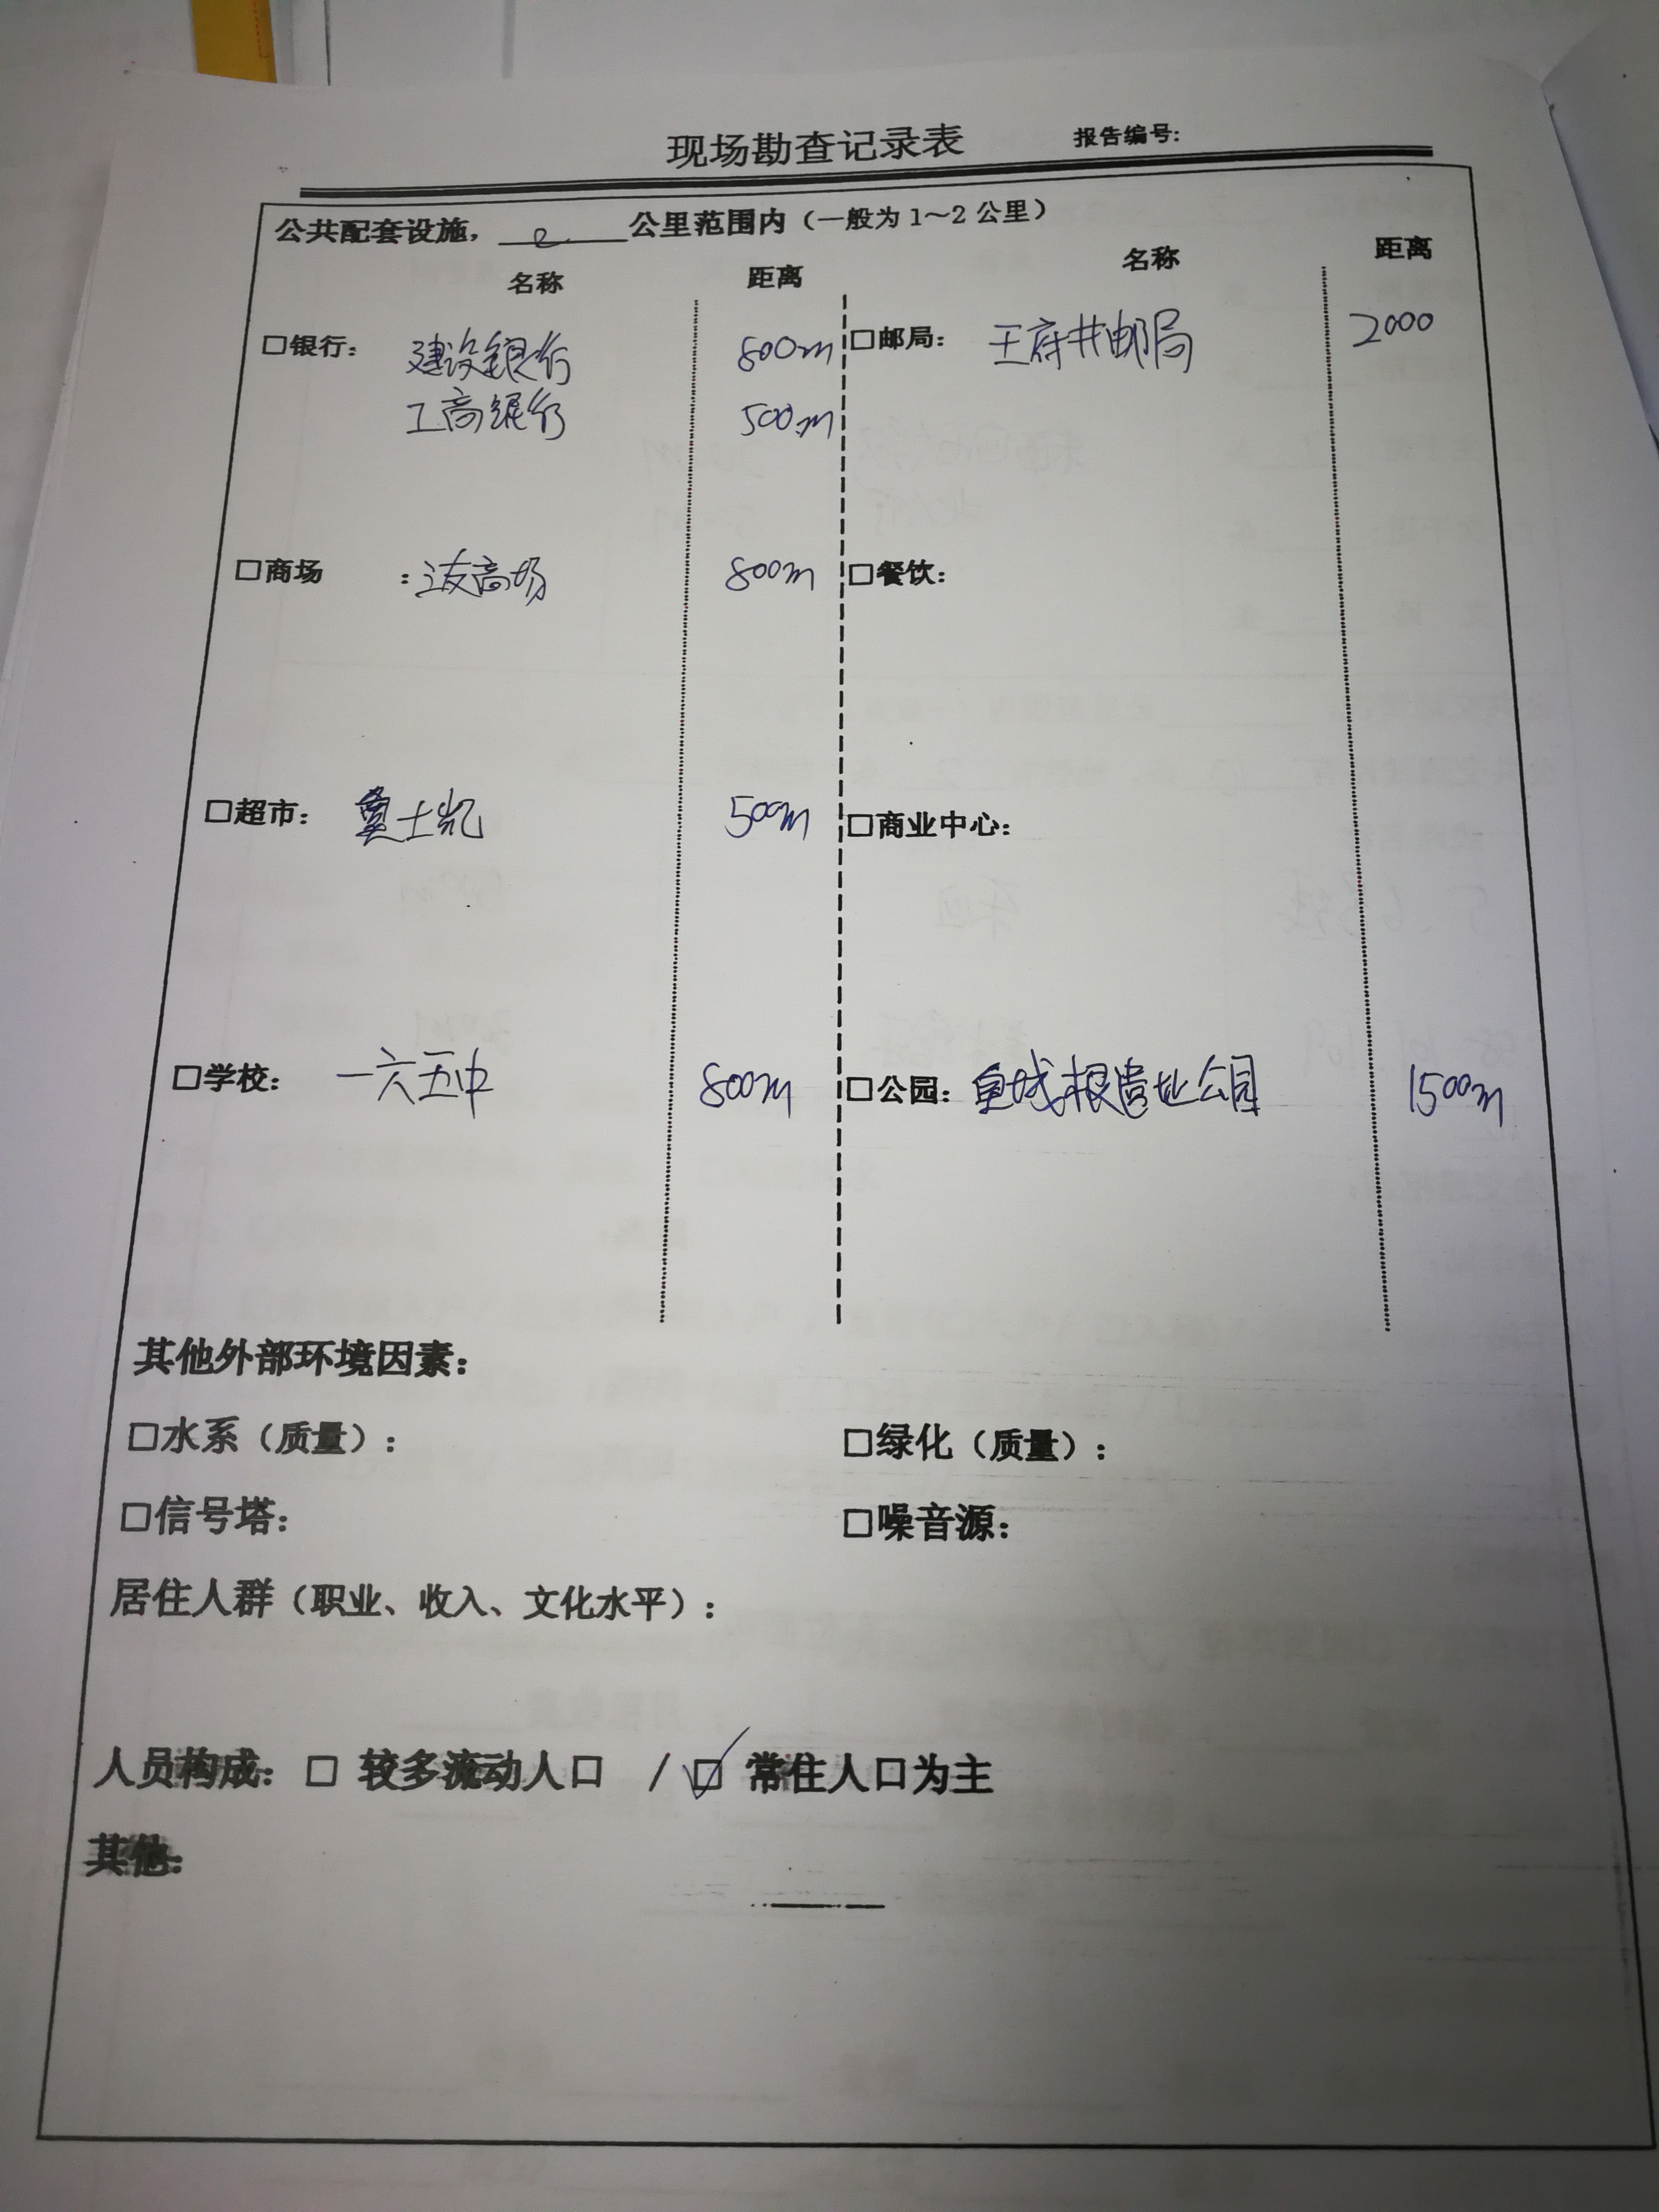 现场勘查记录表 报告编号:
公共配套设施，2公里范围内（一般为1～2公里）
名称 距离 名称 距离
□银行： 建设银行 800m □邮局： 王府井邮局 2000
工商银行 500m
□商场 ：友商场 800m □餐饮：
□超市： 士凯 500m □商业中心：
□学校： 一六五中 800m □公园：皇城根遗址公园 1500m
其他外部环境因素：
□水系（质量）： □绿化（质量）：
□信号塔： □噪音源：
居住人群（职业、收入、文化水平）：
人员构成：□ 较多流动人口 / ☑ 常住人口为主
其他：